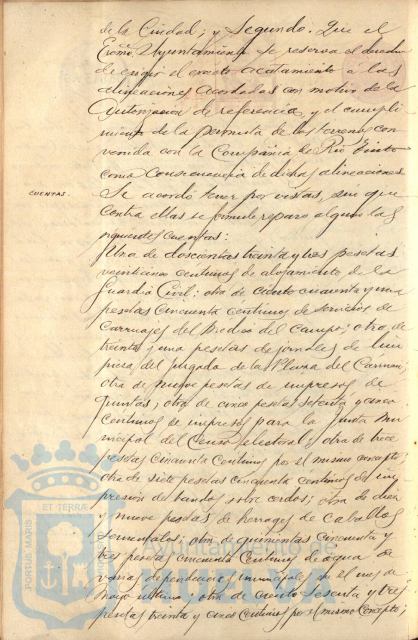 de la Ciudad; y Segundo: Que el
Excmo. Ayuntamiento se reserva el derecho
de exigir el exacto acatamiento a las
alineaciones acordadas con motivo de la
autorizacion de referencia, y el cumpli
miento de la permuta de los terrenos con
venida con la Compañia de Rio Tinto
como consecuencia de dichas alineaciones.
CUENTAS.
Se acordó tener por vistas, sin que
contra ellas se formule reparo alguno las
siguientes cuentas:
Una de doscientas treinta y tres pesetas
veinticinco centimos de alojamiento de la
Guardia Civil; otra de ciento cuarenta y una
pesetas cincuenta centimos de servicios de
carruajes del Medico del campo; otra de
treinta y una pesetas de jornales de lim
pieza del juzgado de la Plaza del Carmen;
otra de nueve pesetas de impresos de
quintas; otra de cinco pesetas setenta y cinco
centimos de impresos para la Junta Mu
nicipal del Censo electoral y otra de trece
pesetas cincuenta centimos por el mismo concepto;
otra de siete pesetas cincuenta centimos de im
presion de bandos sobre cerdos; otra de diez
y nueve pesetas de herrajes de caballos
sementales; otra de quinientas cincuenta y
tres pesetas cincuenta centimos de agua de
varias dependencias municipales en el mes de
Mayo ultimo; otra de ciento sesenta y tres
pesetas treinta y cinco centimos por el mismo concepto;
PORTUS MARIS ET TERRÆ
Ayuntamiento de